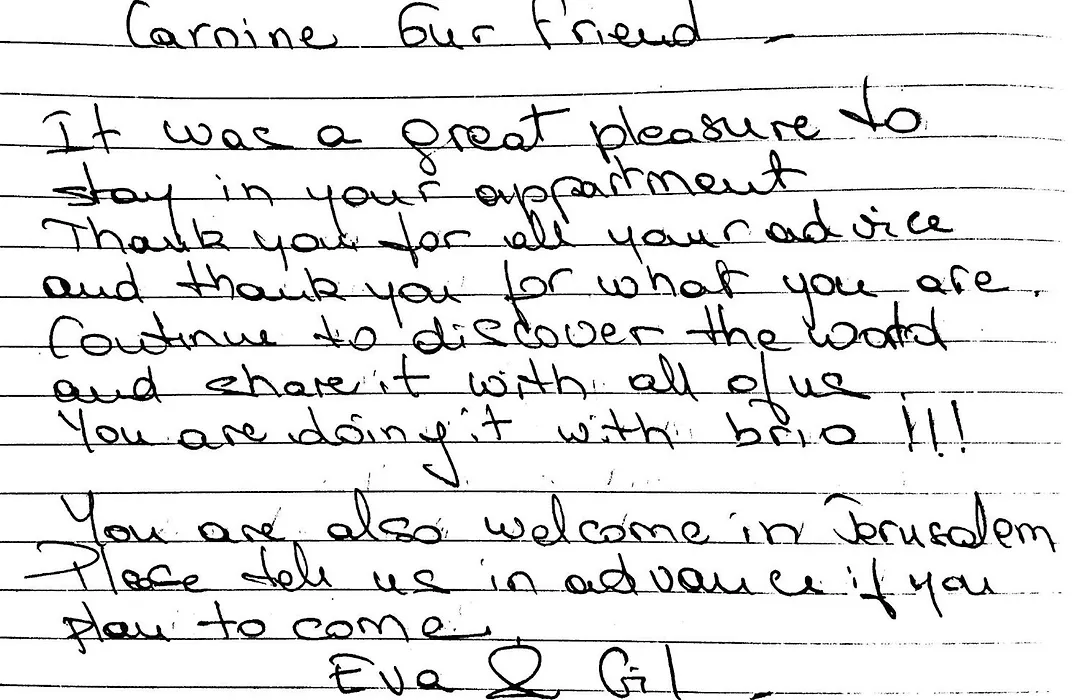 Carnine Our friend -
It was a great pleasure to
stay in your appartment
Thank you for all your advice
and thank you for what you are.
Continue to discover the world
and share it with all of us
You are doing it with brio !!!
You are also welcome in Jerusalem
Please tell us in advance if you
plan to come.
Eva & Gil